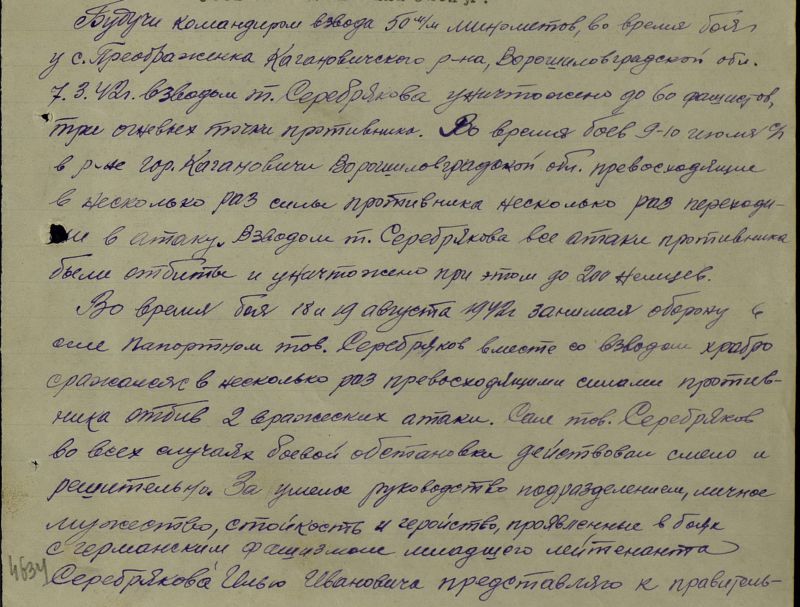 Будучи командиром взвода 50 м/м минометов, во время боя
у с. Преображенка Кагановичского р-на, Ворошиловградской обл.
7.3.42г. взводом т. Серебрякова уничтожено до 60 фашистов,
три огневых точки противника. Во время боев 9-10 июля с/г
в р-не гор. Кагановичи Ворошиловградской обл. превосходящие
в несколько раз силы противника несколько раз переходи-
ли в атаку. Взводом т. Серебрякова все атаки противника
были отбиты и уничтожено при этом до 200 немцев.
Во время боя 18 и 19 августа 1942г занимая оборону в
селе Папортном тов. Серебряков вместе со взводом храбро
сражался с в несколько раз превосходящими силами против-
ника отбив 2 вражеских атаки. Сам тов. Серебряков
во всех случаях боевой обстановки действовал смело и
решительно. За умелое руководство подразделением, личное
мужество, стойкость и геройство, проявленные в боях
с германским фашизмом младшего лейтенанта
Серебрякова Илью Ивановича представляю к правитель-
4634